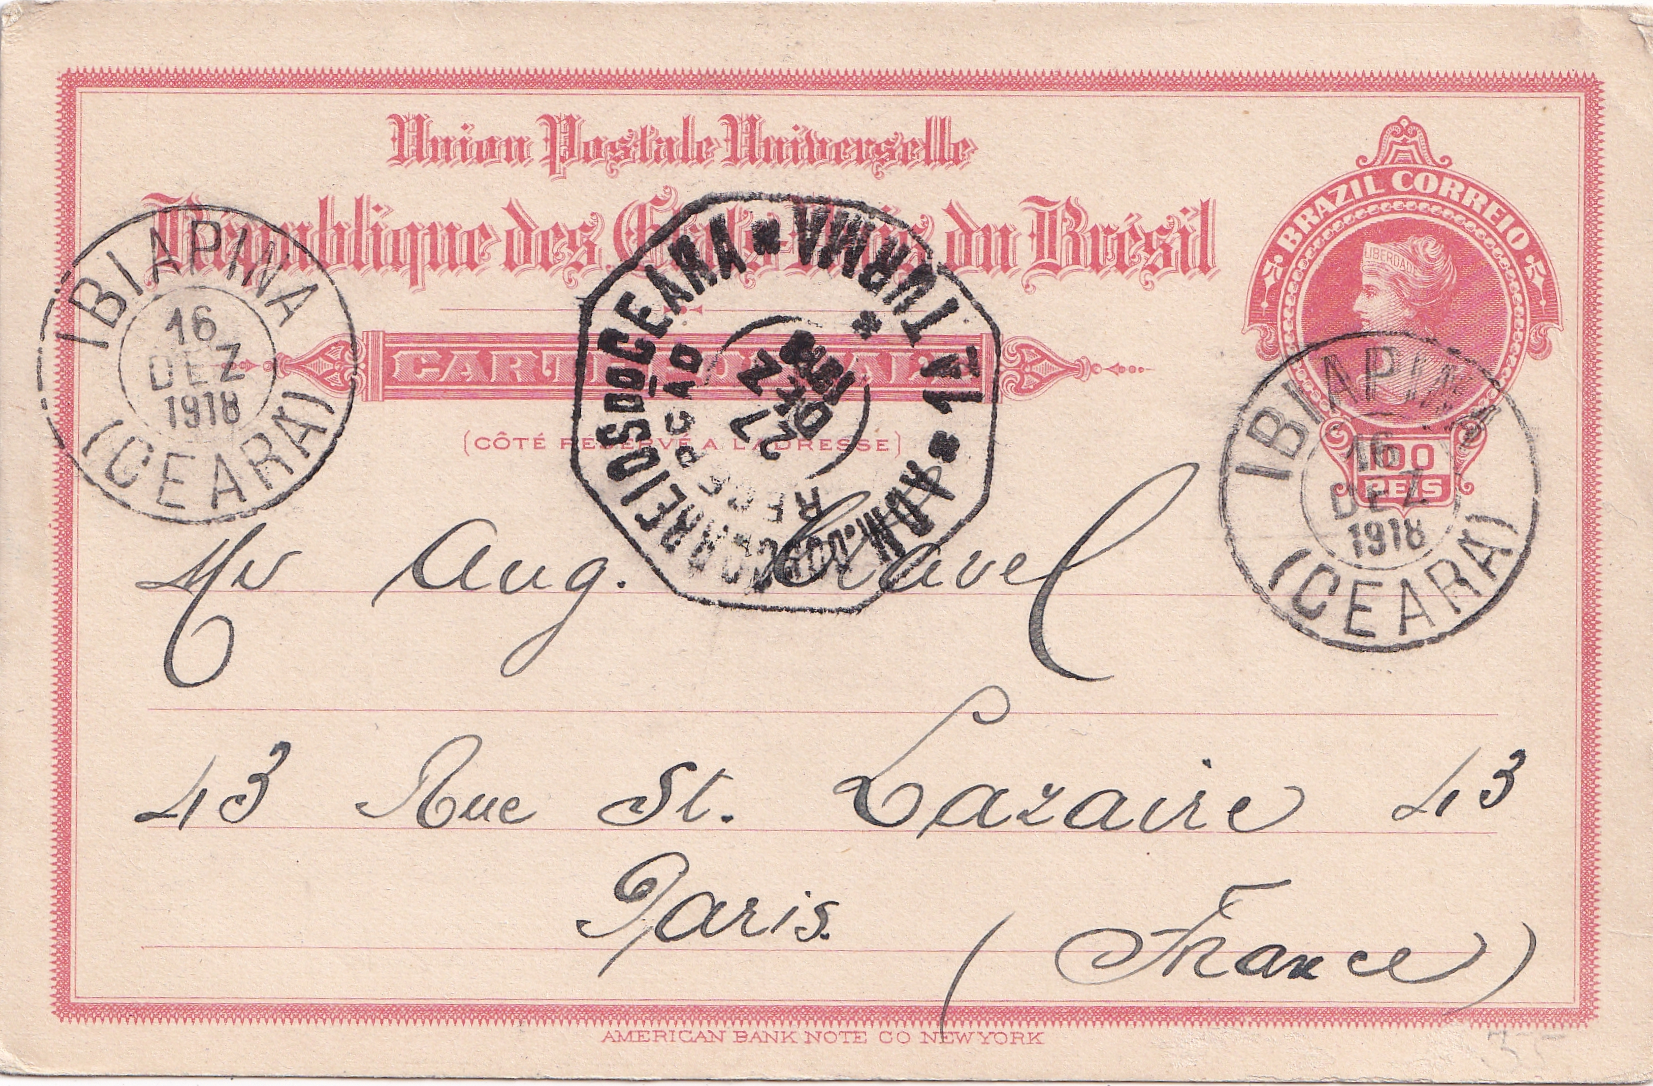 Union Postale Universelle
République des États-Unis du Brésil
BRAZIL CORREIO
LIBERDADE
CARTE POSTALE
(CÔTÉ RÉSERVÉ A L'ADRESSE)
100
REIS
IBIAPINA
16
DEZ
1918
(CEARÁ)
ADM. DOS CORREIOS DO CEARA * 1A TURMA *
27
DEZ
1918
IBIAPINA
16
DEZ
1918
(CEARÁ)
Mr Aug. Cravel
43 Rue St. Lazaire 43
Paris. (France)
AMERICAN BANK NOTE CO NEW YORK